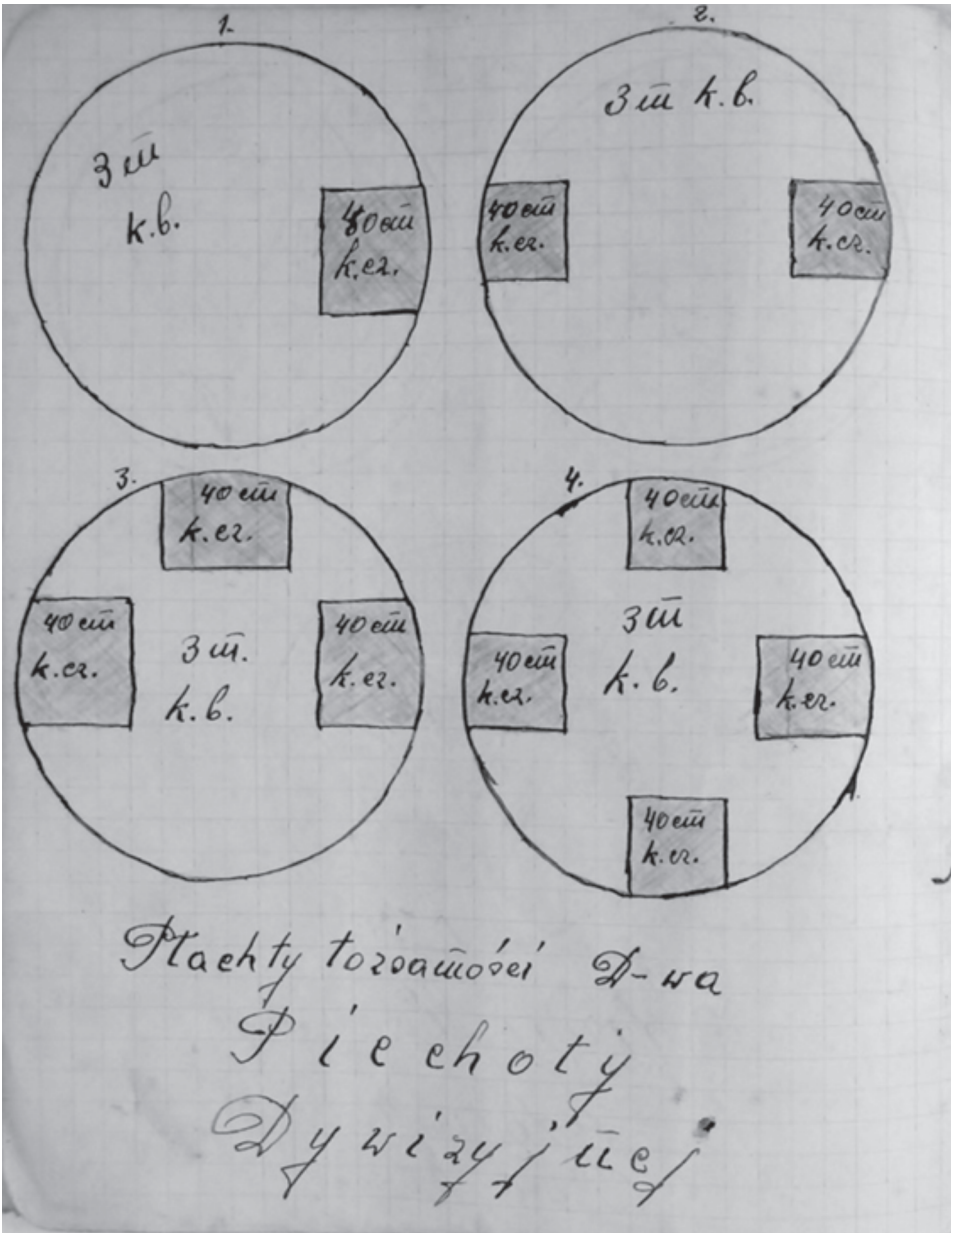 1.
3 m
k.b.
40 cm
k.cz.
2.
3 m k.b.
40 cm
k.cz.
40 cm
k.cz.
3.
40 cm
k.cz.
40 cm
k.cz.
3 m.
k.b.
40 cm
k.cz.
4.
40 cm
k.cz.
40 cm
k.cz.
3 m
k.b.
40 cm
k.cz.
40 cm
k.cz.
Płachty tożsamości D-wa
Piechoty
Dywizyjnej